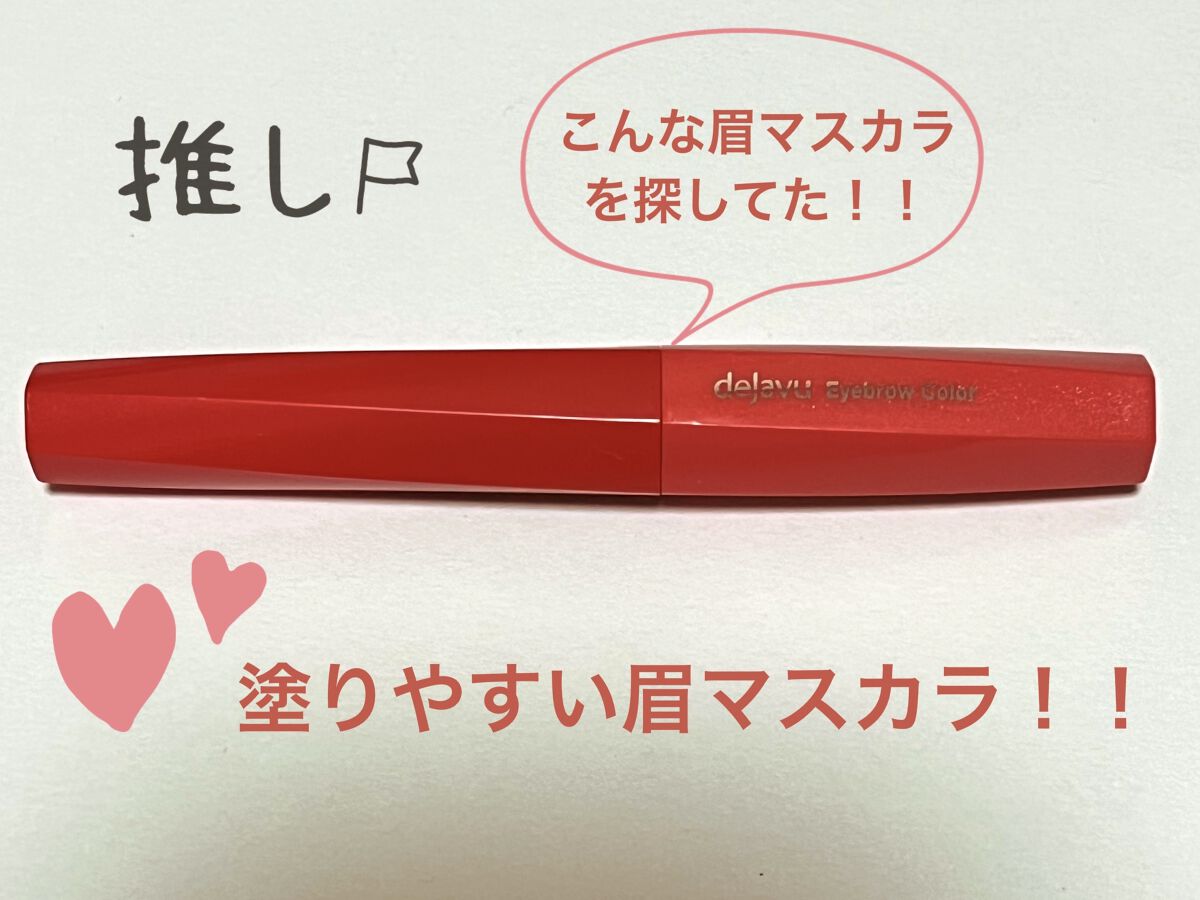 推し
こんな眉マスカラ
を探してた！！
dejavu Eyebrow Color
塗りやすい眉マスカラ！！